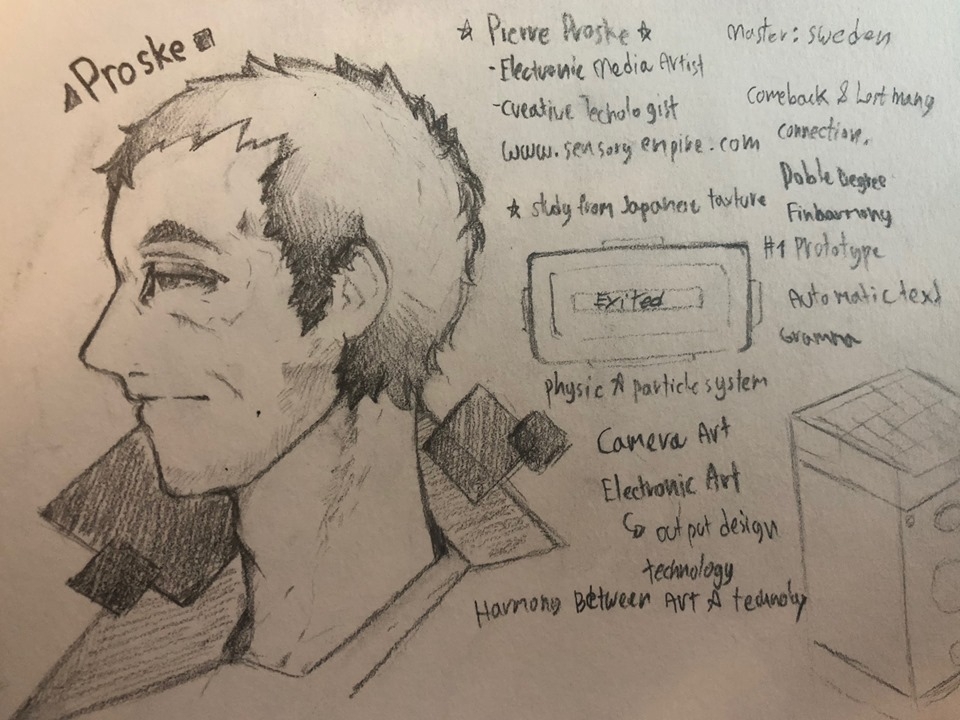 Proske
☆ Pierre Proske ☆
- Electronic Media Artist
- creative Techologist
www.sensory empire.com
☆ study from Japanese taxture
Exited
physic & particle system
Camera Art
Electronic Art
↳ output design
technology
Harmony Between Art &
Master: sweden
Comeback & Lost many
connection.
Doble Degree
#1 Prototype
Automatic text